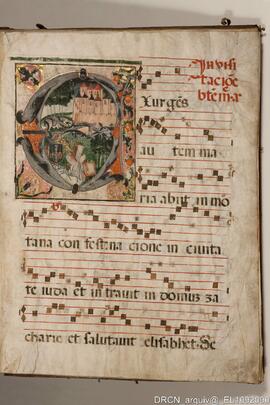 In visi
tacioē
btē mar
Exurgēs
au tem ma
ria abiit in mō
tana con festina cione in ciuita
te iuda et in trauit in domuz za
charie et salutauit elisabhet: Se
DRCN_arquiv@_FL1092